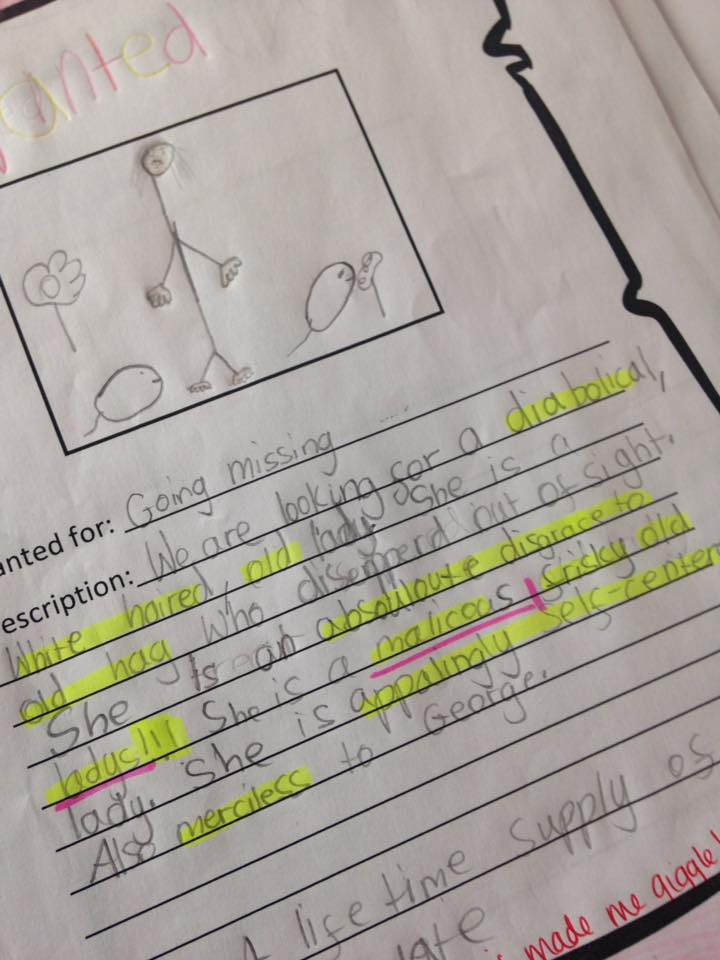 anted
anted for: Going missing
escription: We are looking for a diabolical,
White haired, old lady. She is a
old hag who disepperd out of sight.
She is an absouloute disgrace to
ladys!!! She is a malicoas, frisky old
lady. She is appalingly self-center
Also merciless to George.
A life time supply of
late
made me giggle!